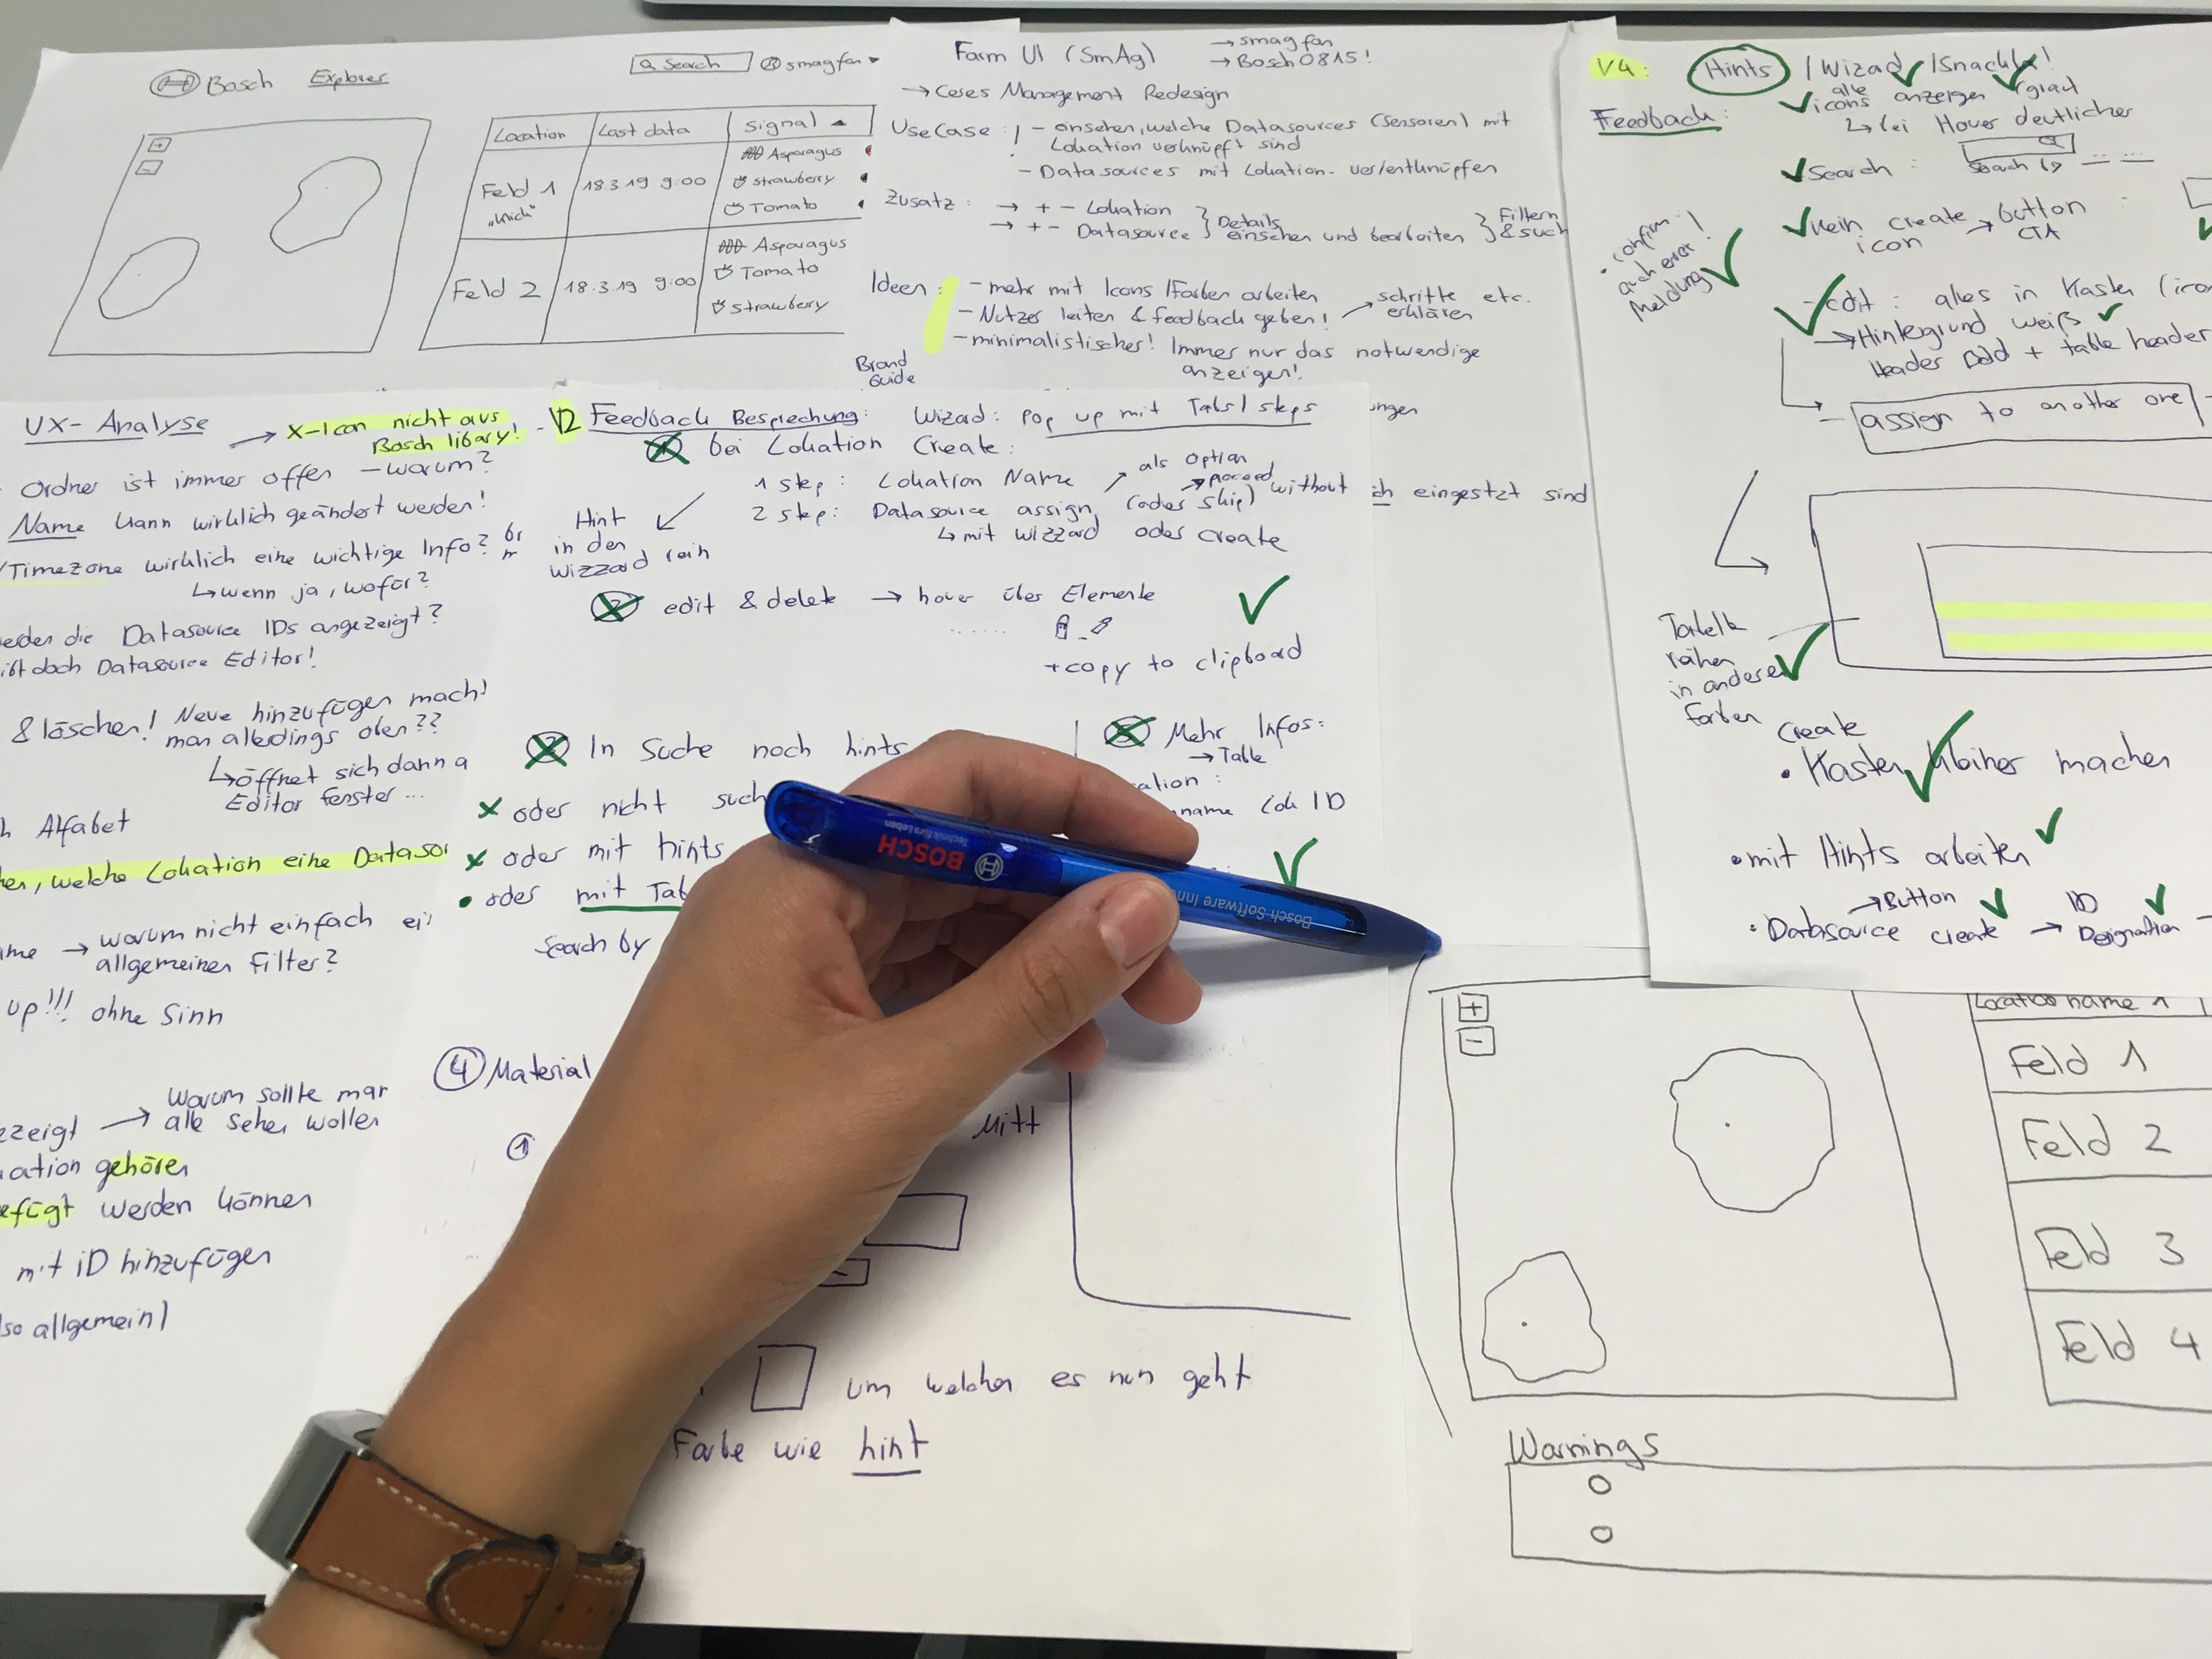 Bosch Explorer
Search smagfan
Location Last data Signal
Feld 1 18.3.19 9:00 Asparagus
Strawberry
Tomato
Feld 2 18.3.19 9:00 Asparagus
Tomato
Strawberry
Farm UI (SmAg) → smagfan
→ Bosch0815!
→ Ceres Management Redesign
UseCase: ! - einsehen, welche Datasources (Sensoren) mit
Lokation verknüpft sind
- Datasources mit Lokation - ver/entknüpfen
Zusatz: → + - Lokation
→ + - Datasource } Details
einsehen und bearbeiten } Filtern
& such
Ideen: - mehr mit Icons / Farben arbeiten
- Nutzer leiten & feedback geben! → schritte etc.
erklären
- minimalistischer! Immer nur das notwendige
anzeigen!
Brand
Guide
ungen
ch eingestzt sind
V4: Hints / Wizad / Snack
Feedback:
alle
icons anzeigen (grau
↳ bei Hover deutlicher
Search: Seach by
kein create → button
icon CTA
• confirm:
auch einer !
Meldung
- edit: alles in Kasten (icon
→ Hintergrund weiß
Header Bold + table header
assign to another one
Tabelle
in andere
farben
Create
• Kasten kleiner machen
• mit Hints arbeiten
→ Button ID
• Datasource create → Designation
UX-Analyse → X-Icon nicht aus
Bosch libary!
Ordner ist immer offen - warum?
Name kann wirklich geändert werden!
/Timezone wirklich eine wichtige Info?
↳ wenn ja, wofür?
erden die Datasource IDs angezeigt?
ibt doch Datasource Editor!
& löschen! Neue hinzufügen mach!
man allerdings oben??
↳ öffnet sich dann a
Editor fenster...
h Alfabet
hen, welche Lokation eine Dataso
ame → warum nicht einfach ei
allgemeinen Filter?
up!!! ohne Sinn
ezeigt → Warum sollte man
alle sehen wollen
kation gehören
efügt werden können
mit iD hinzufügen
lso allgemein)
V2 Feedback Besprechung: Wizard: Pop up mit Tabs / steps
1 bei Lokation Create:
1 step: Lokation Name als Option
→ proceed without
2 step: Datasource assign (oder skip)
↳ mit wizzard oder create
Hint
in den
wizzard rein
2 edit & delete → hover über Elemente
+ copy to clipboard
3 In Suche noch hints
x oder nicht such
x oder mit hints
• oder mit Tab
Search by
5 Mehr Infos:
→ Table
ation:
name Lok ID
4 Material
1
Mitt
um welchen es nun geht
Farbe wie hint
BOSCH
Technik fürs Leben
Bosch Software Inno
+
-
Location name 1
Feld 1
Feld 2
Feld 3
Feld 4
Warnings